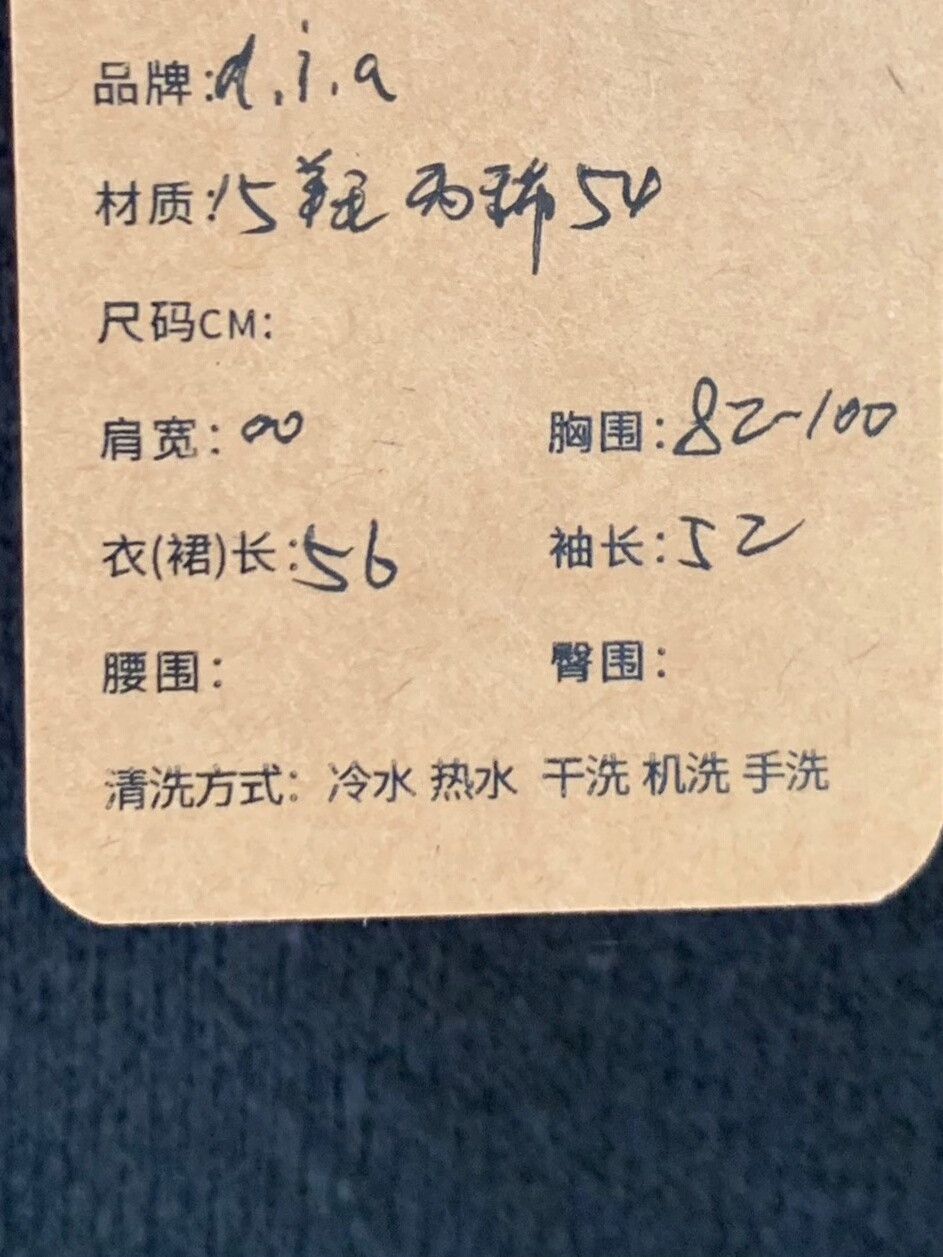 品牌:d.i.a
材质:15羊毛 丙烯54
尺码CM:
肩宽:00 胸围:82-100
衣(裙)长:56 袖长:52
腰围: 臀围:
清洗方式: 冷水 热水 干洗 机洗 手洗